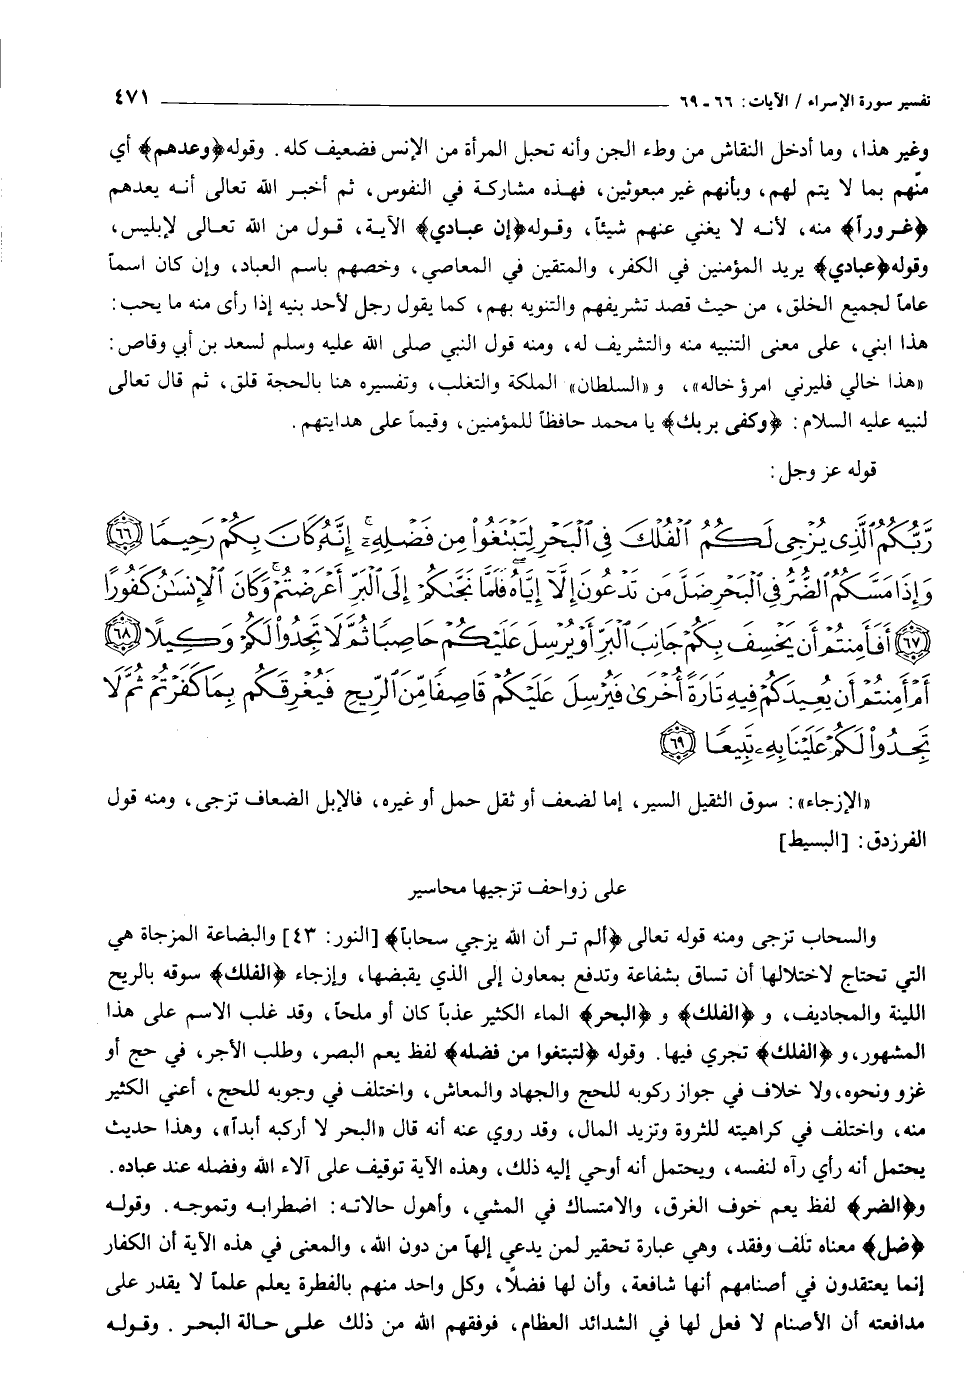 تفسير سورة الإسراء / الآيات: ٦٦ - ٦٩ ٤٧١
وغير هذا، وما أدخل النقاش من وطء الجن وأنه تحبل المرأة من الإنس فضعيف كله. وقوله ﴿وعدهم﴾ أي
منّهم بما لا يتم لهم، وبأنهم غير مبعوثين، فهذه مشاركة في النفوس، ثم أخبر الله تعالى أنه يعدهم
﴿غروراً﴾ منه، لأنه لا يغني عنهم شيئاً، وقوله ﴿إن عبادي﴾ الآية، قول من الله تعالى لإبليس،
وقوله ﴿عبادي﴾ يريد المؤمنين في الكفر، والمتقين في المعاصي، وخصهم باسم العباد، وإن كان اسماً
عاماً لجميع الخلق، من حيث قصد تشريفهم والتنويه بهم، كما يقول رجل لأحد بنيه إذا رأى منه ما يحب:
هذا ابني، على معنى التنبيه منه والتشريف له، ومنه قول النبي صلى الله عليه وسلم لسعد بن أبي وقاص:
«هذا خالي فليرني امرؤ خاله»، و «السلطان» الملكة والتغلب، وتفسيره هنا بالحجة قلق، ثم قال تعالى
لنبيه عليه السلام: ﴿وكفى بربك﴾ يا محمد حافظاً للمؤمنين، وقيماً على هدايتهم.
قوله عز وجل:
رَّبُّكُمُ ٱلَّذِى يُزْجِى لَكُمُ ٱلْفُلْكَ فِى ٱلْبَحْرِ لِتَبْتَغُوا۟ مِن فَضْلِهِۦٓ ۚ إِنَّهُۥ كَانَ بِكُمْ رَحِيمًا ﴿٦٦﴾
وَإِذَا مَسَّكُمُ ٱلضُّرُّ فِى ٱلْبَحْرِ ضَلَّ مَن تَدْعُونَ إِلَّآ إِيَّاهُ ۖ فَلَمَّا نَجَّىٰكُمْ إِلَى ٱلْبَرِّ أَعْرَضْتُمْ ۚ وَكَانَ ٱلْإِنسَٰنُ كَفُورًا
﴿٦٧﴾ أَفَأَمِنتُمْ أَن يَخْسِفَ بِكُمْ جَانِبَ ٱلْبَرِّ أَوْ يُرْسِلَ عَلَيْكُمْ حَاصِبًا ثُمَّ لَا تَجِدُوا۟ لَكُمْ وَكِيلًا ﴿٦٨﴾
أَمْ أَمِنتُمْ أَن يُعِيدَكُمْ فِيهِ تَارَةً أُخْرَىٰ فَيُرْسِلَ عَلَيْكُمْ قَاصِفًا مِّنَ ٱلرِّيحِ فَيُغْرِقَكُم بِمَا كَفَرْتُمْ ۙ ثُمَّ لَا
تَجِدُوا۟ لَكُمْ عَلَيْنَا بِهِۦ تَبِيعًا ﴿٦٩﴾
«الإزجاء»: سوق الثقيل السير، إما لضعف أو ثقل حمل أو غيره، فالإبل الضعاف تزجى، ومنه قول
الفرزدق: [البسيط]
على زواحف تزجيها محاسير
والسحاب تزجى ومنه قوله تعالى ﴿ألم تر أن الله يزجي سحاباً﴾ [النور: ٤٣] والبضاعة المزجاة هي
التي تحتاج لاختلالها أن تساق بشفاعة وتدفع بمعاون إلى الذي يقبضها، وإزجاء ﴿الفلك﴾ سوقه بالريح
اللينة والمجاديف، و ﴿الفلك﴾ و ﴿البحر﴾ الماء الكثير عذباً كان أو ملحاً، وقد غلب الاسم على هذا
المشهور، و ﴿الفلك﴾ تجري فيها. وقوله ﴿لتبتغوا من فضله﴾ لفظ يعم البصر، وطلب الأجر، في حج أو
غزو ونحوه، ولا خلاف في جواز ركوبه للحج والجهاد والمعاش، واختلف في وجوبه للحج، أعني الكثير
منه، واختلف في كراهيته للثروة وتزيد المال، وقد روي عنه أنه قال «البحر لا أركبه أبداً»، وهذا حديث
يحتمل أنه رأي رآه لنفسه، ويحتمل أنه أوحي إليه ذلك، وهذه الآية توقيف على آلاء الله وفضله عند عباده.
و﴿الضر﴾ لفظ يعم خوف الغرق، والامتساك في المشي، وأهول حالاته: اضطرابه وتموجه. وقوله
﴿ضل﴾ معناه تلف وفقد، وهي عبارة تحقير لمن يدعي إلهاً من دون الله، والمعنى في هذه الآية أن الكفار
إنما يعتقدون في أصنامهم أنها شافعة، وأن لها فضلًا، وكل واحد منهم بالفطرة يعلم علماً لا يقدر على
مدافعته أن الأصنام لا فعل لها في الشدائد العظام، فوقفهم الله من ذلك على حالة البحر. وقوله